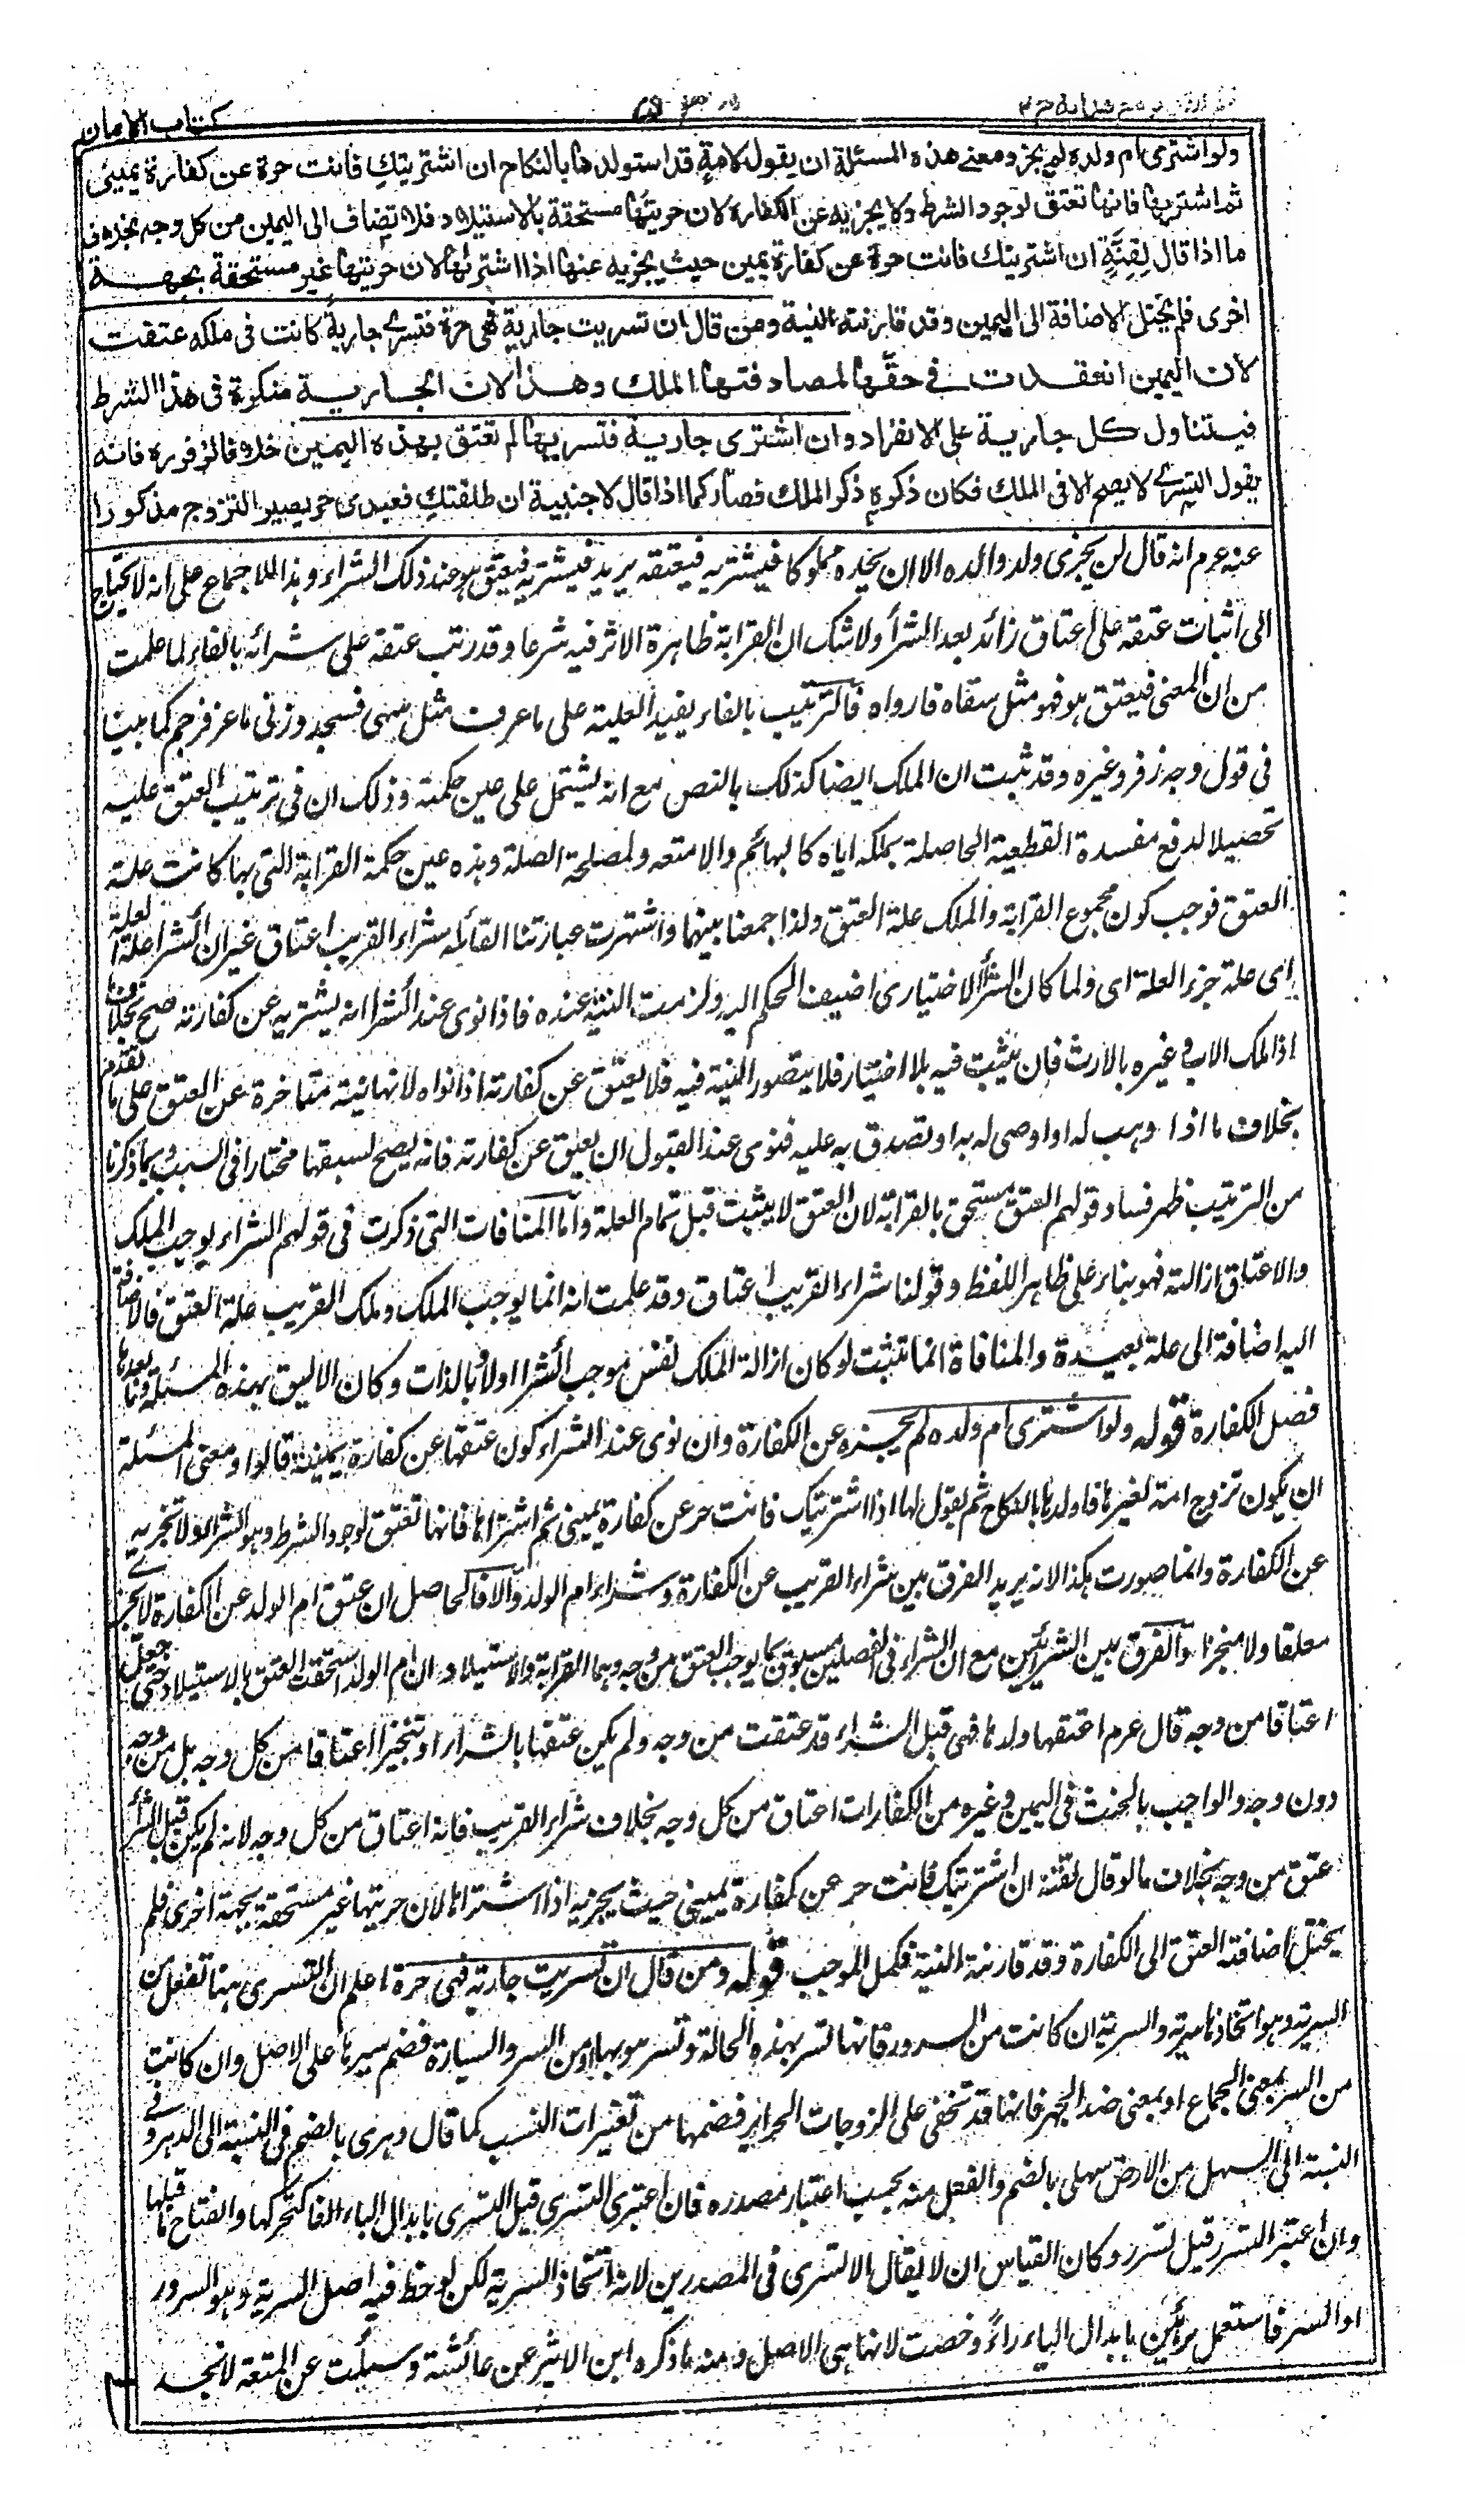 كتاب الايمان
ولو اشترى ام ولده لم يجز ومعنى هذه المسئلة ان يقول لامة قد استولدها بالنكاح ان اشتريتك فانت حرة عن كفارة يمينى
ثم اشتريها فانها تعتق لوجود الشرط ولا يجزيه عن الكفارة لان حريتها مستحقة بالاستيلاد فلا تضاف الى اليمين من كل وجه بخلاف
ما اذا قال لقنة ان اشتريتك فانت حرة عن كفارة يمين حيث يجزيه عنها اذا اشتراها لان حريتها غير مستحقة بجهة
اخرى فلم يختل الاضافة الى اليمين وقد قارنته النية ومن قال ان تسريت جارية فهى حرة فتسرى جارية كانت فى ملكه عتقت
لان اليمين انعقدت فى حقها لمصادفتها الملك وهذا لان الجارية منكرة فى هذا الشرط
فيتناول كل جارية على الانفراد وان اشترى جارية فتسريها لم تعتق بهذه اليمين خلافا لزفر ره فانه
يقول التسرى لا يصح الا فى الملك فكان ذكره ذكر الملك فصار كما اذا قال لاجنبية ان طلقتك فعبدى حر يصير التزوج مذكورا
عنه عرم انه قال لن يجزى ولد والده الا ان يجده مملوكا فيشتريه فيعتقه يريد فيشتريه فيعتق هو عند ذلك الشراء وهذا للاجماع على انه لا يحتاج
الى اثبات عتقه على اعتاق زائد بعد الشرأ ولا شك ان القرابة ظاهرة الاثر فيه شرعا وقد رتب عتقه على شرائه بالفاء لما علمت
من ان المعنى فيعتق هو فهو مثل سقاه فارواه فالترتيب بالفاء يفيد العلية على ما عرف مثل سهى فسجد وزنى ماعز فرجم كما بينا
فى قول وجه زفر وغيره وقد ثبت ان الملك ايضا كذلك بالنص مع انه يشتمل على عين حكمته وذلك ان فى ترتيب العتق عليه
تحصيلا لدفع مفسدة القطيعة الحاصلة بملكه اياه كالبهائم والامتعه ولمصلحة الصلة وهذه عين حكمة القرابة التى بها كانت علة
العتق فوجب كون مجموع القرابة والملك علة العتق ولذا جمعنا بينهما واشتهرت عبارتنا القائله شراء القريب اعتاق غير ان الشرا علة العلة
اى علة جزء العلة اى ولما كان الشرأ الاختيارى اضيف الحكم اليه ولزمت النية عنده فاذا نوى عند الشرا انه يشتريه عن كفارته صح بخلاف
اذا ملك الاب وغيره بالارث فان يثبت فيه بلا اختيار فلا يتصور النية فيه فلا يعتق عن كفارته اذا نواه لانها نية متاخرة عن العتق على ما تقدم
بخلاف ما اذا وهب له او اوصى له به او تصدق به عليه فنوى عند القبول ان يعتق عن كفارته فانه يصح لسبقها مختارا فى السبب وبما ذكرنا
من الترتيب ظهر فساد قولهم العتق مستحق بالقرابة لان العتق لا يثبت قبل تمام العلة واما المنافات التى ذكرت فى قولهم الشراء يوجب الملك
والاعتاق ازالته فهو بناء على ظاهر اللفظ وقولنا شراء القريب اعتاق وقد علمت انه انما يوجب الملك وملك القريب علة العتق فالاضافة
اليه اضافة الى علة بعيدة والمنافاة انما تثبت لو كان ازالة الملك نفس موجب الشرا اولا وبالذات وكان الاليق بهذه المسئلة وما بعدها
فصل الكفارة قوله ولو اشترى ام ولده لم يجزه عن الكفارة وان نوى عند الشراء كون عتقها عن كفارة يمينه قالوا ومعنى المسئلة
ان يكون تزوج امة لغيره فاولدها بالنكاح ثم يقول لها اذا اشتريتك فانت حر عن كفارة يمينى ثم اشتراها فانها تعتق لوجود الشرط وهو الشرا ولا تجزيه
عن الكفارة وانما صورت هكذا لانه يريد الفرق بين شراء القريب عن الكفارة وشراء ام الولد والا فالحاصل ان عتق ام الولد عن الكفارة لا يجزى
معلقا ولا منجزا والفرق بين الشرائين مع ان الشراء فى الفصلين مسبوق بما يوجب العتق من وجه وهما القرابة والاستيلاد ان ام الولد استحقت العتق بالاستيلاد حتى جعل
اعتاقا من وجه قال عرم اعتقها ولدها فهى قبل الشراء قد عتقت من وجه ولم يكن عتقها بالشراء او تنجيزا اعتاقا من كل وجه بل من وجه
دون وجه والواجب بالحنث فى اليمين وغيره من الكفارات اعتاق من كل وجه بخلاف شراء القريب فانه اعتاق من كل وجه لانه لم يكن قبل الشرأ
عتق من وجه بخلاف ما لو قال لقنة ان اشتريتك فانت حر عن كفارة يمينى حيث يجزيه اذا اشتراها لان حريتها غير مستحقة بجهة اخرى فلم
يختل اضافة العتق الى الكفارة وقد قارنته النية فكمل الموجب قوله ومن قال ان تسريت جارية فهى حرة اعلم ان التسرى هنا تفعل من
السرية وهو اتخاذها سرية والسرية ان كانت من السرور فانها تسر بهذه الحالة وتسر هو بها او من السر والسيادة فضم سينها على الاصل وان كانت
من السر بمعنى الجماع او بمعنى ضد الجهر فانها قد تخفى على الزوجات الحرائر فضمها من تغيرات النسب كما قال دهرى بالضم فى النسبة الى الدهر وفى
النسبة الى السهل من الارض سهلى بالضم والفعل منه بحسب اعتبار مصدره فان اعتبرى التسرى قيل التسرى بابدال الياء الفا لتحركها وانفتاح ما قبلها
وان اعتبر التسرر قيل تسرر وكان القياس ان لا يقال الا تسرى فى المصدرين لانه اتخاذ السرية لكن لوحظ فيه اصل السرية وهو السرور
او السر فاستعمل برائين بابدال الياء راءً وخصت لانها هى الاصل ومنه ما ذكره ابن الاثير عن عائشة وسئلت عن المتعة لا نجد